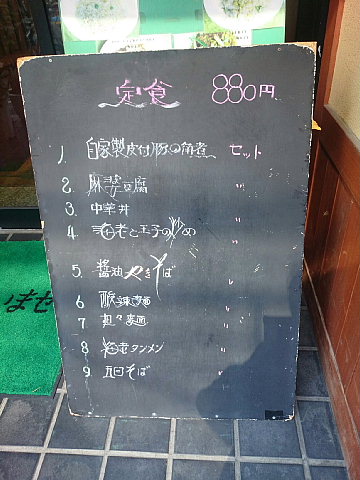 定食 880円
1. 自家製皮付豚の角煮 セット
2. 麻婆豆腐 〃
3 中華丼 〃
4 海老と玉子の炒め 〃
5. 醤油やきそば 〃
6 酸辣麺 〃
7 担々麺 〃
8 海老タンメン 〃
9 五目そば 〃
ませ